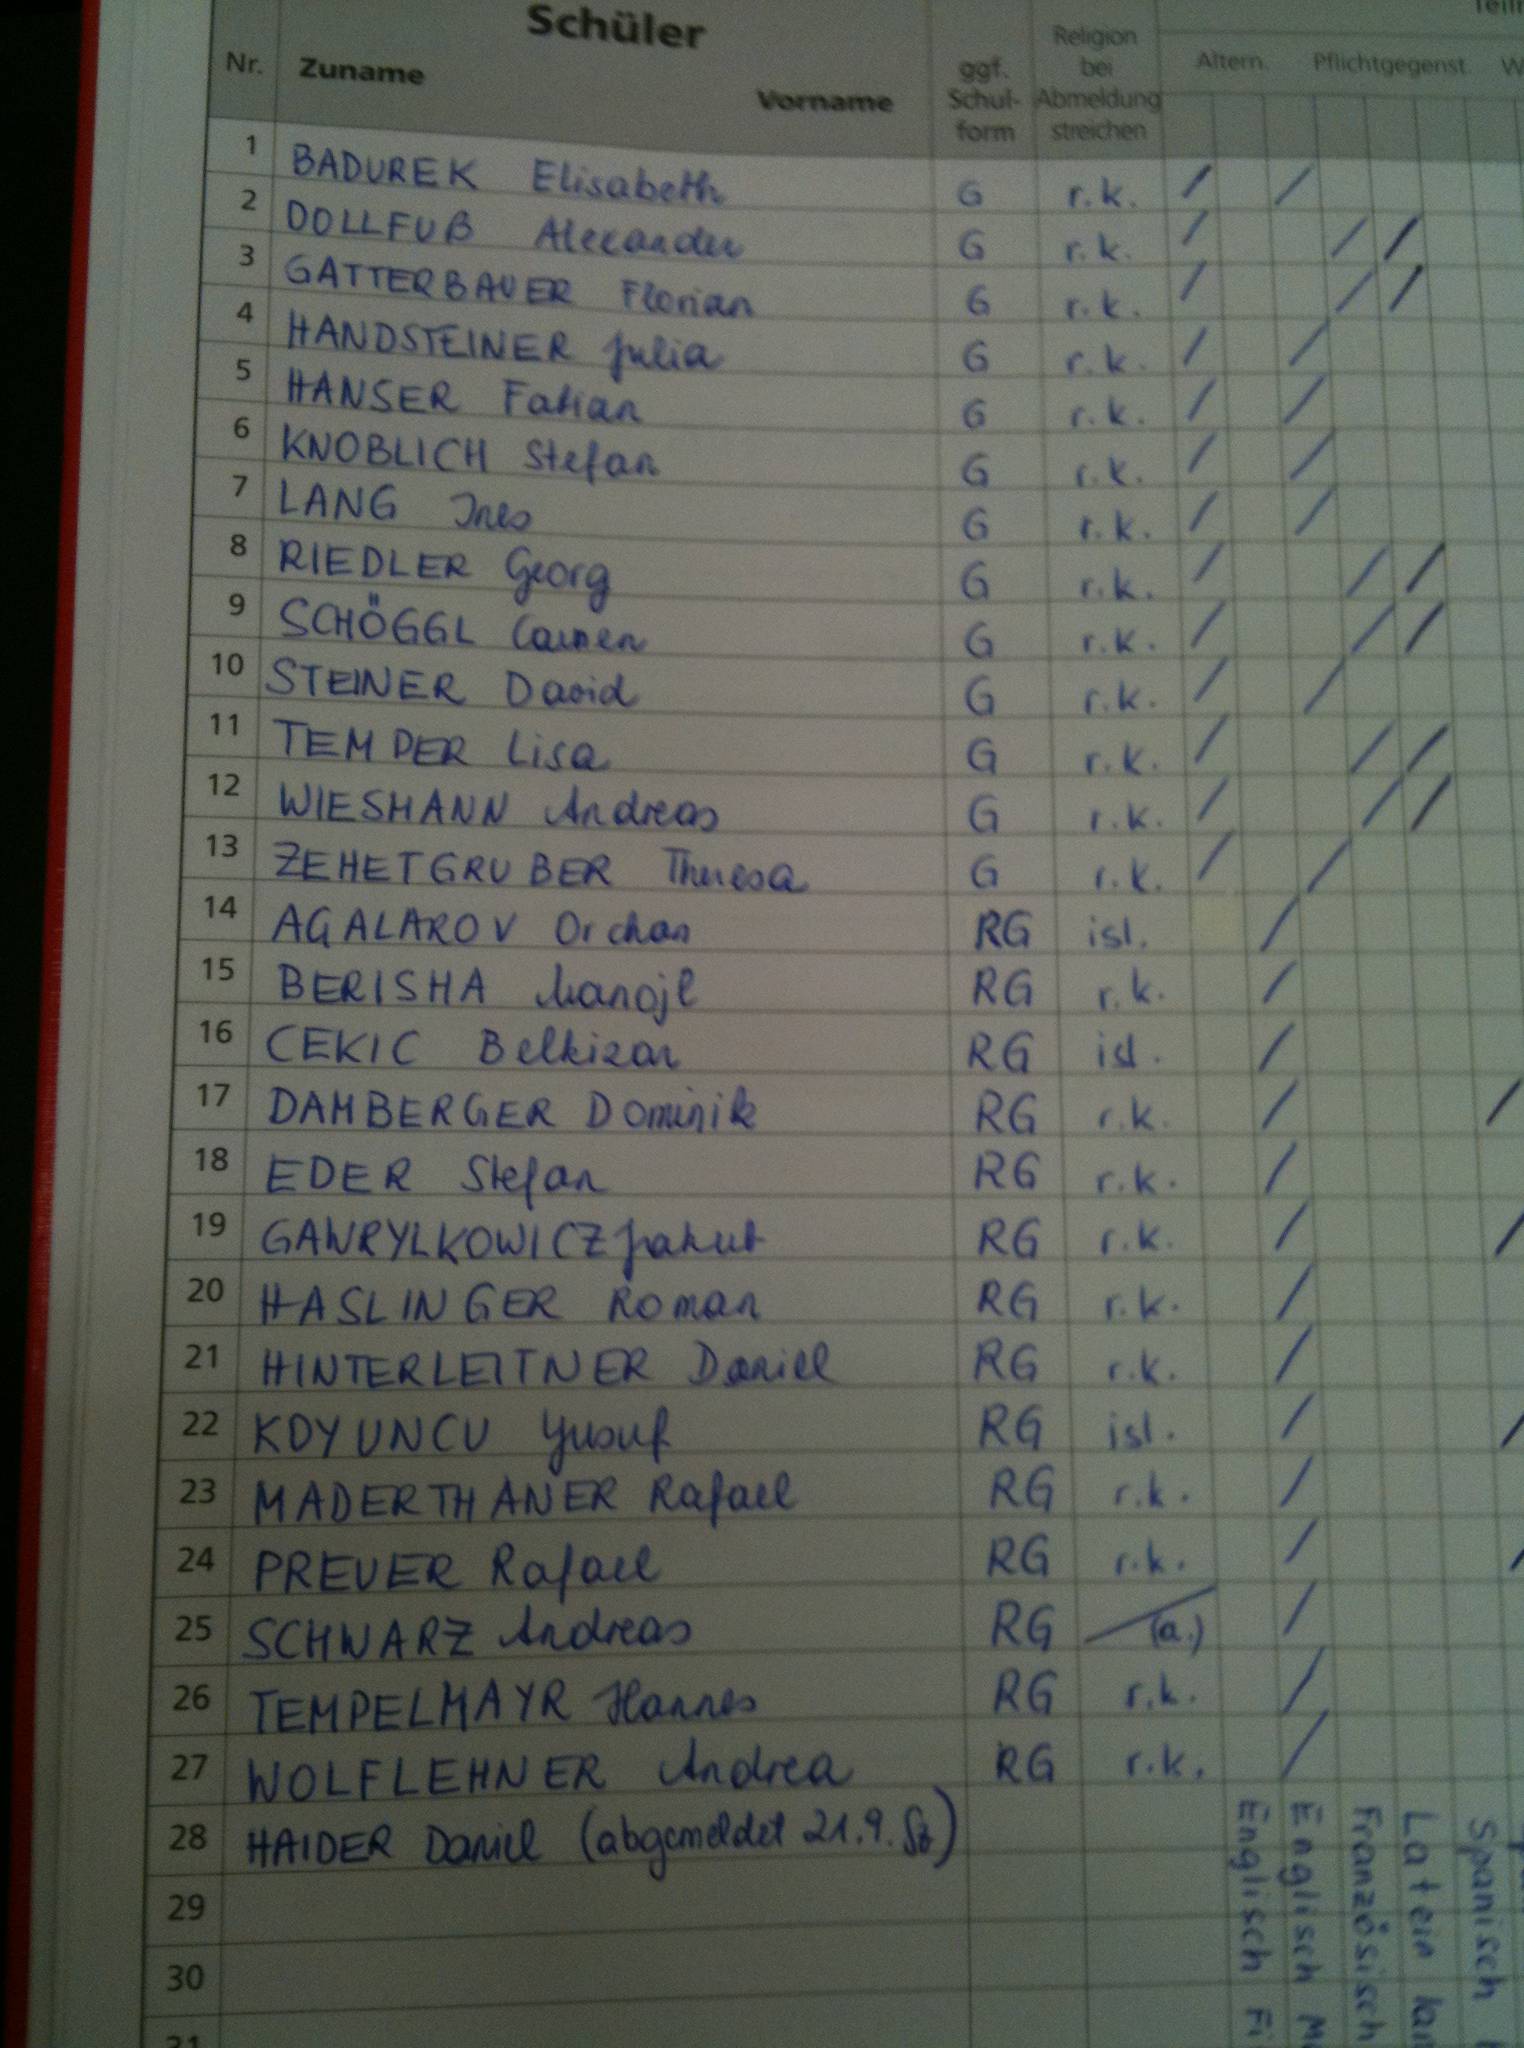 Schüler
Nr. Zuname Vorname ggf. Schul- form Religion bei Abmeldung streichen Altern. Pflichtgegenst.
1 BADUREK Elisabeth G r.k. / /
2 DOLLFUß Alexander G r.k. / / /
3 GATTERBAUER Florian G r.k. / / /
4 HANDSTEINER Julia G r.k. / /
5 HANSER Fabian G r.k. / /
6 KNOBLICH Stefan G r.k. / /
7 LANG Ines G r.k. / /
8 RIEDLER Georg G r.k. / / /
9 SCHÖGGL Carmen G r.k. / / /
10 STEINER David G r.k. / /
11 TEMPER Lisa G r.k. / / /
12 WIESMANN Andreas G r.k. / / /
13 ZEHETGRUBER Theresa G r.k. / /
14 AGALAROV Orchan RG isl. /
15 BERISHA Manojl RG r.k. /
16 CEKIC Belkizar RG isl. /
17 DAMBERGER Dominik RG r.k. / /
18 EDER Stefan RG r.k. /
19 GAWRYLKOWICZ Jakub RG r.k. / /
20 HASLINGER Roman RG r.k. /
21 HINTERLEITNER Daniel RG r.k. /
22 KOYUNCU Yusuf RG isl. / /
23 MADERTHANER Rafael RG r.k. /
24 PREUER Rafael RG r.k. / /
25 SCHWARZ Andreas RG (a.) /
26 TEMPELMAYR Hannes RG r.k. /
27 WOLFLEHNER Andrea RG r.k. /
28 HAIDER Daniel (abgemeldet 21.9. )
29
30
31
Englisch
Englisch
Französisch
Latein
Spanisch